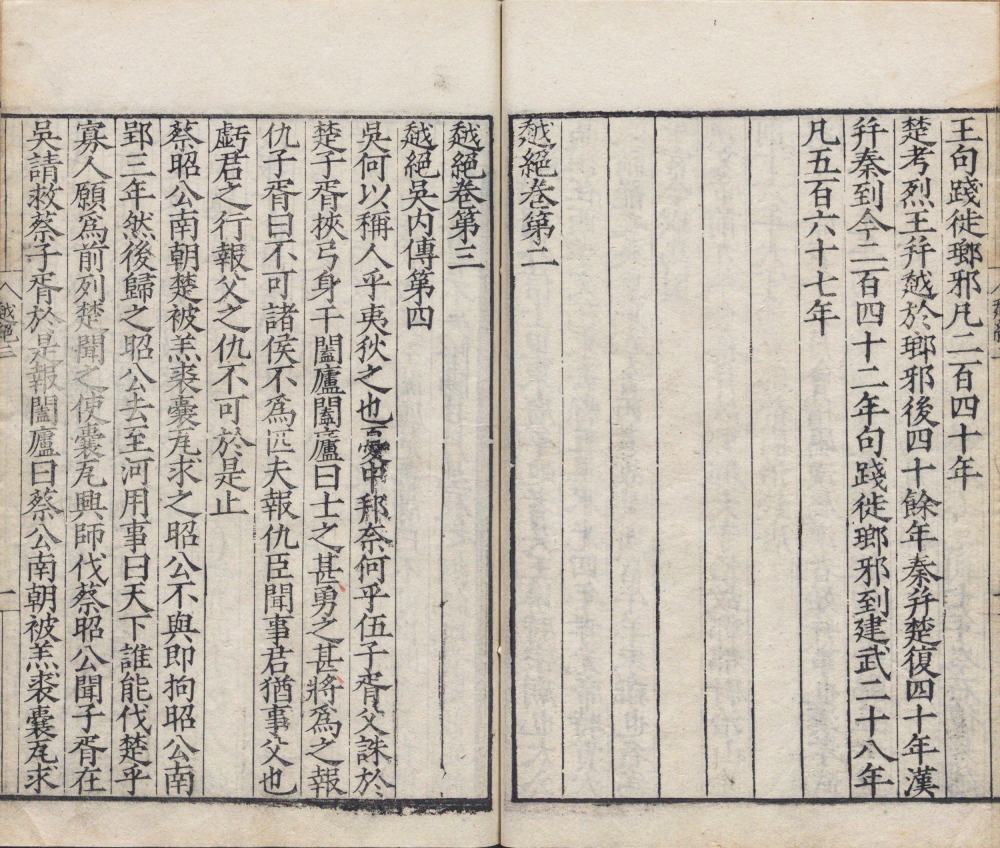 王句踐徙瑯邪凡二百四十年
楚考烈王并越於瑯邪後四十餘年秦并楚復四十年漢
并秦到今二百四十二年句踐徙瑯邪到建武二十八年
凡五百六十七年
越絕卷第二
越絕卷第三
越絕吳內傳第四
吳何以稱人乎夷狄之也憂中邦奈何乎伍子胥父誅於
楚子胥挾弓身干闔廬闔廬曰士之甚勇之甚將爲之報
仇子胥曰不可諸侯不爲匹夫報仇臣聞事君猶事父也
虧君之行報父之仇不可於是止
蔡昭公南朝楚被羔裘囊瓦求之昭公不與即拘昭公南
郢三年然後歸之昭公去至河用事曰天下誰能伐楚乎
寡人願爲前列楚聞之使囊瓦興師伐蔡昭公聞子胥在
吳請救蔡子胥於是報闔廬曰蔡公南朝被羔裘囊瓦求
越絕三
一